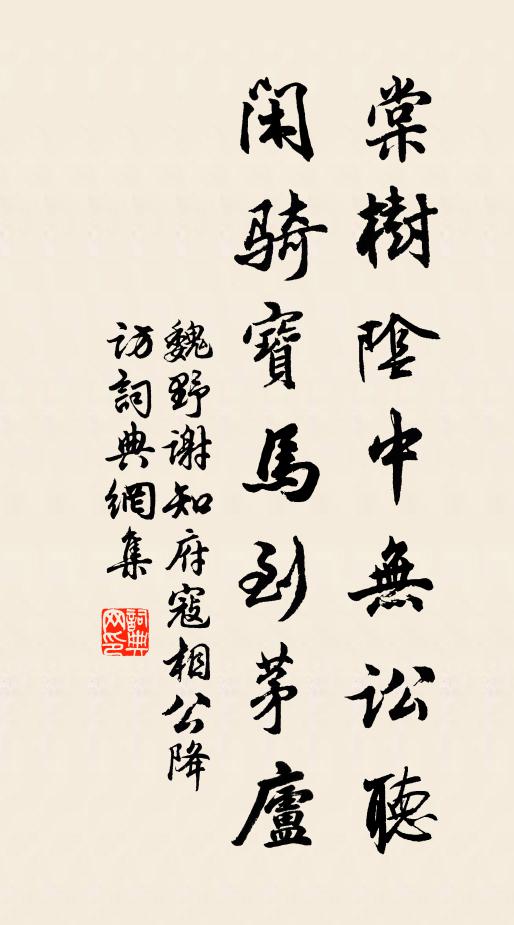 棠樹陰中無訟聽
閑騎寶馬到茅廬
魏野謝知府寇相公降
訪詞典網集
詞典網印